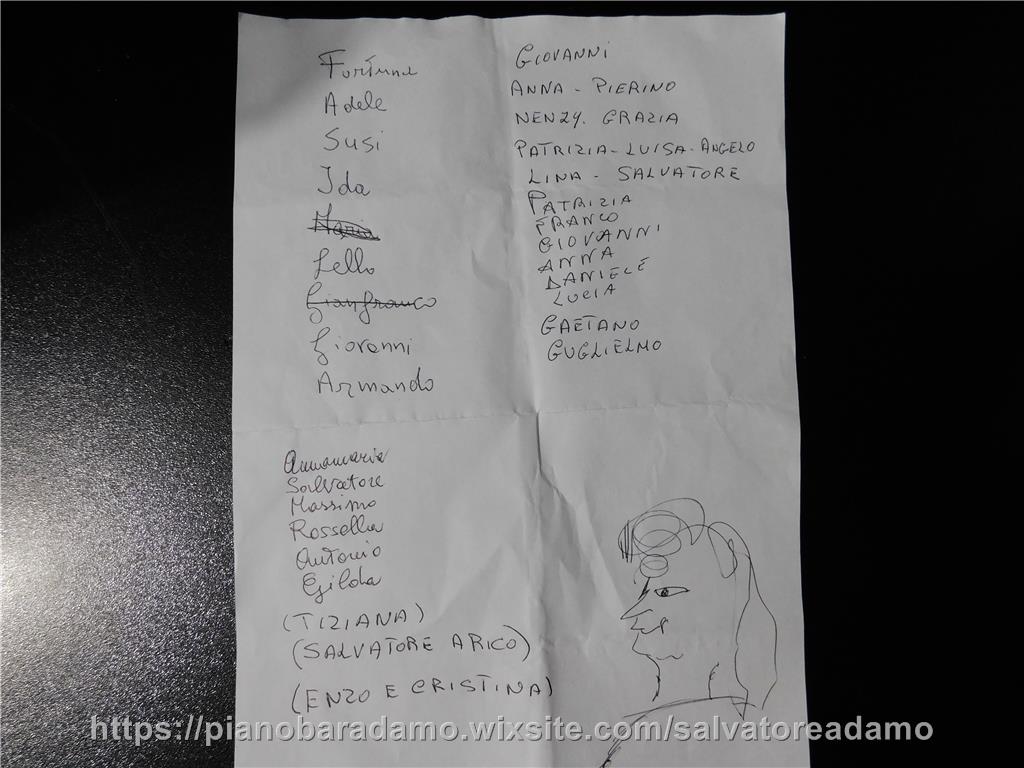 Fortuna
Adele
Susi
Ida
Maria
Lello
Gianfranco
Giovanni
Armando
Annamaria
Salvatore
Massimo
Rossella
Antonio
Gilda
(TIZIANA)
(SALVATORE ARICO)
(ENZO E CRISTINA)
GIOVANNI
ANNA - PIERINO
NENZY. GRAZIA
PATRIZIA - LUISA - ANGELO
LINA - SALVATORE
PATRIZIA
FRANCO
GIOVANNI
ANNA
DANIELE
LUCIA
GAETANO
GUGLIELMO
https://pianobaradamo.wixsite.com/salvatoreadamo